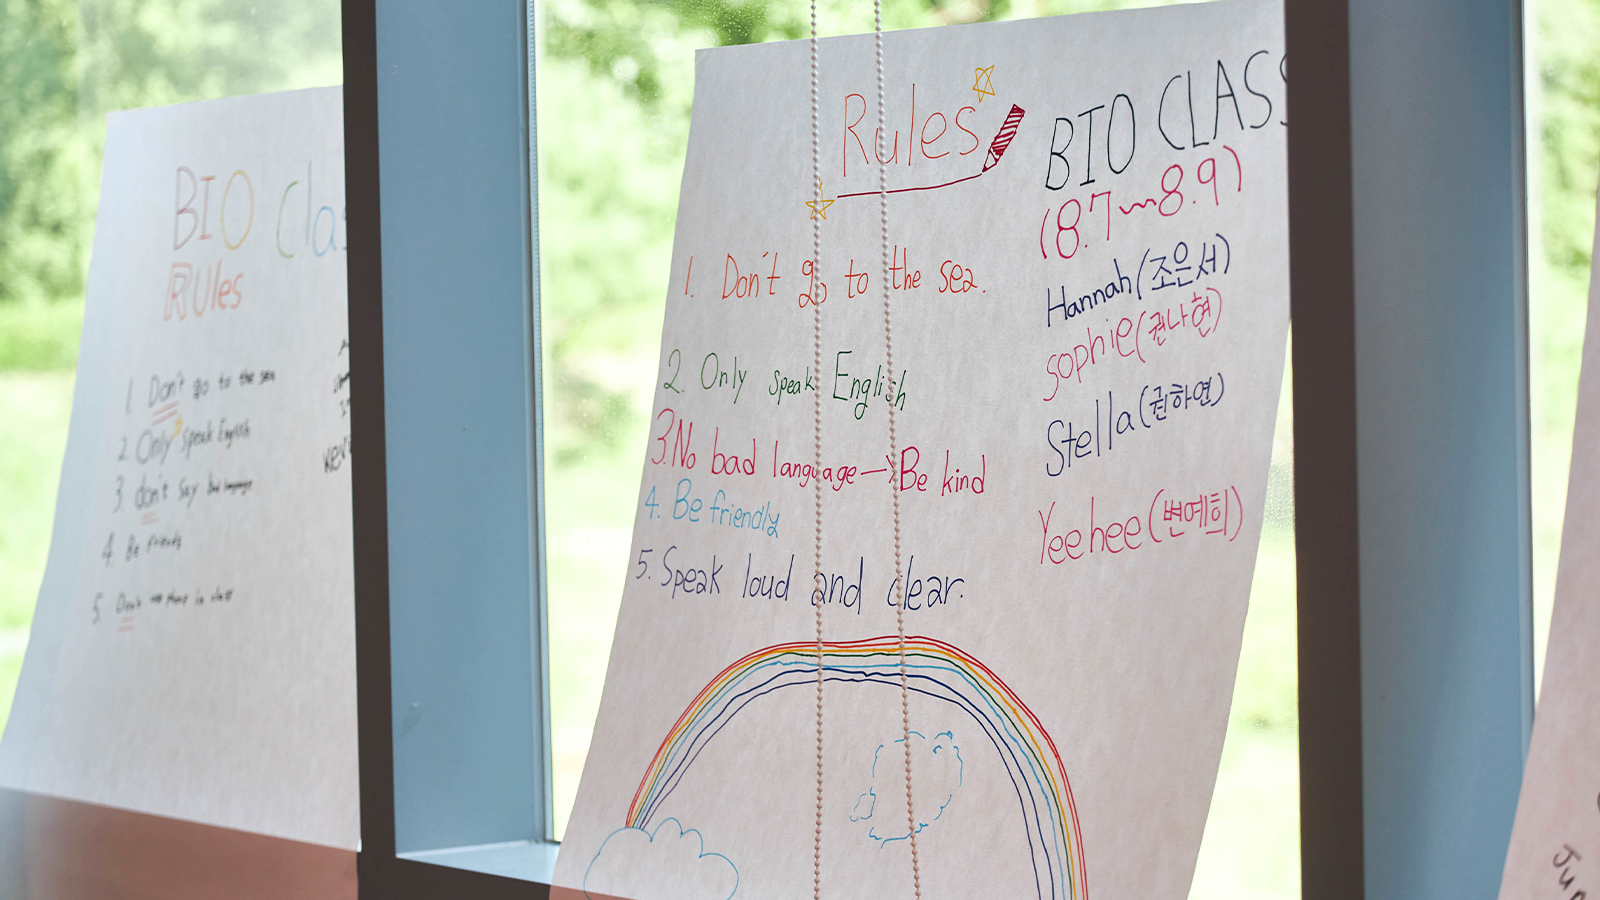 BIO Clas
Rules
1. Don't go to the sea
2. Only speak English
3. don't say bad language
4. Be friends
5. Don't in class
Rules
1. Don't go to the sea.
2. Only speak English
3. No bad language → Be kind
4. Be friendly
5. Speak loud and clear.
BIO CLASS
(8.7~8.9)
Hannah (조은서)
sophie (권나현)
Stella (권하연)
Yeehee (변예희)
Jun